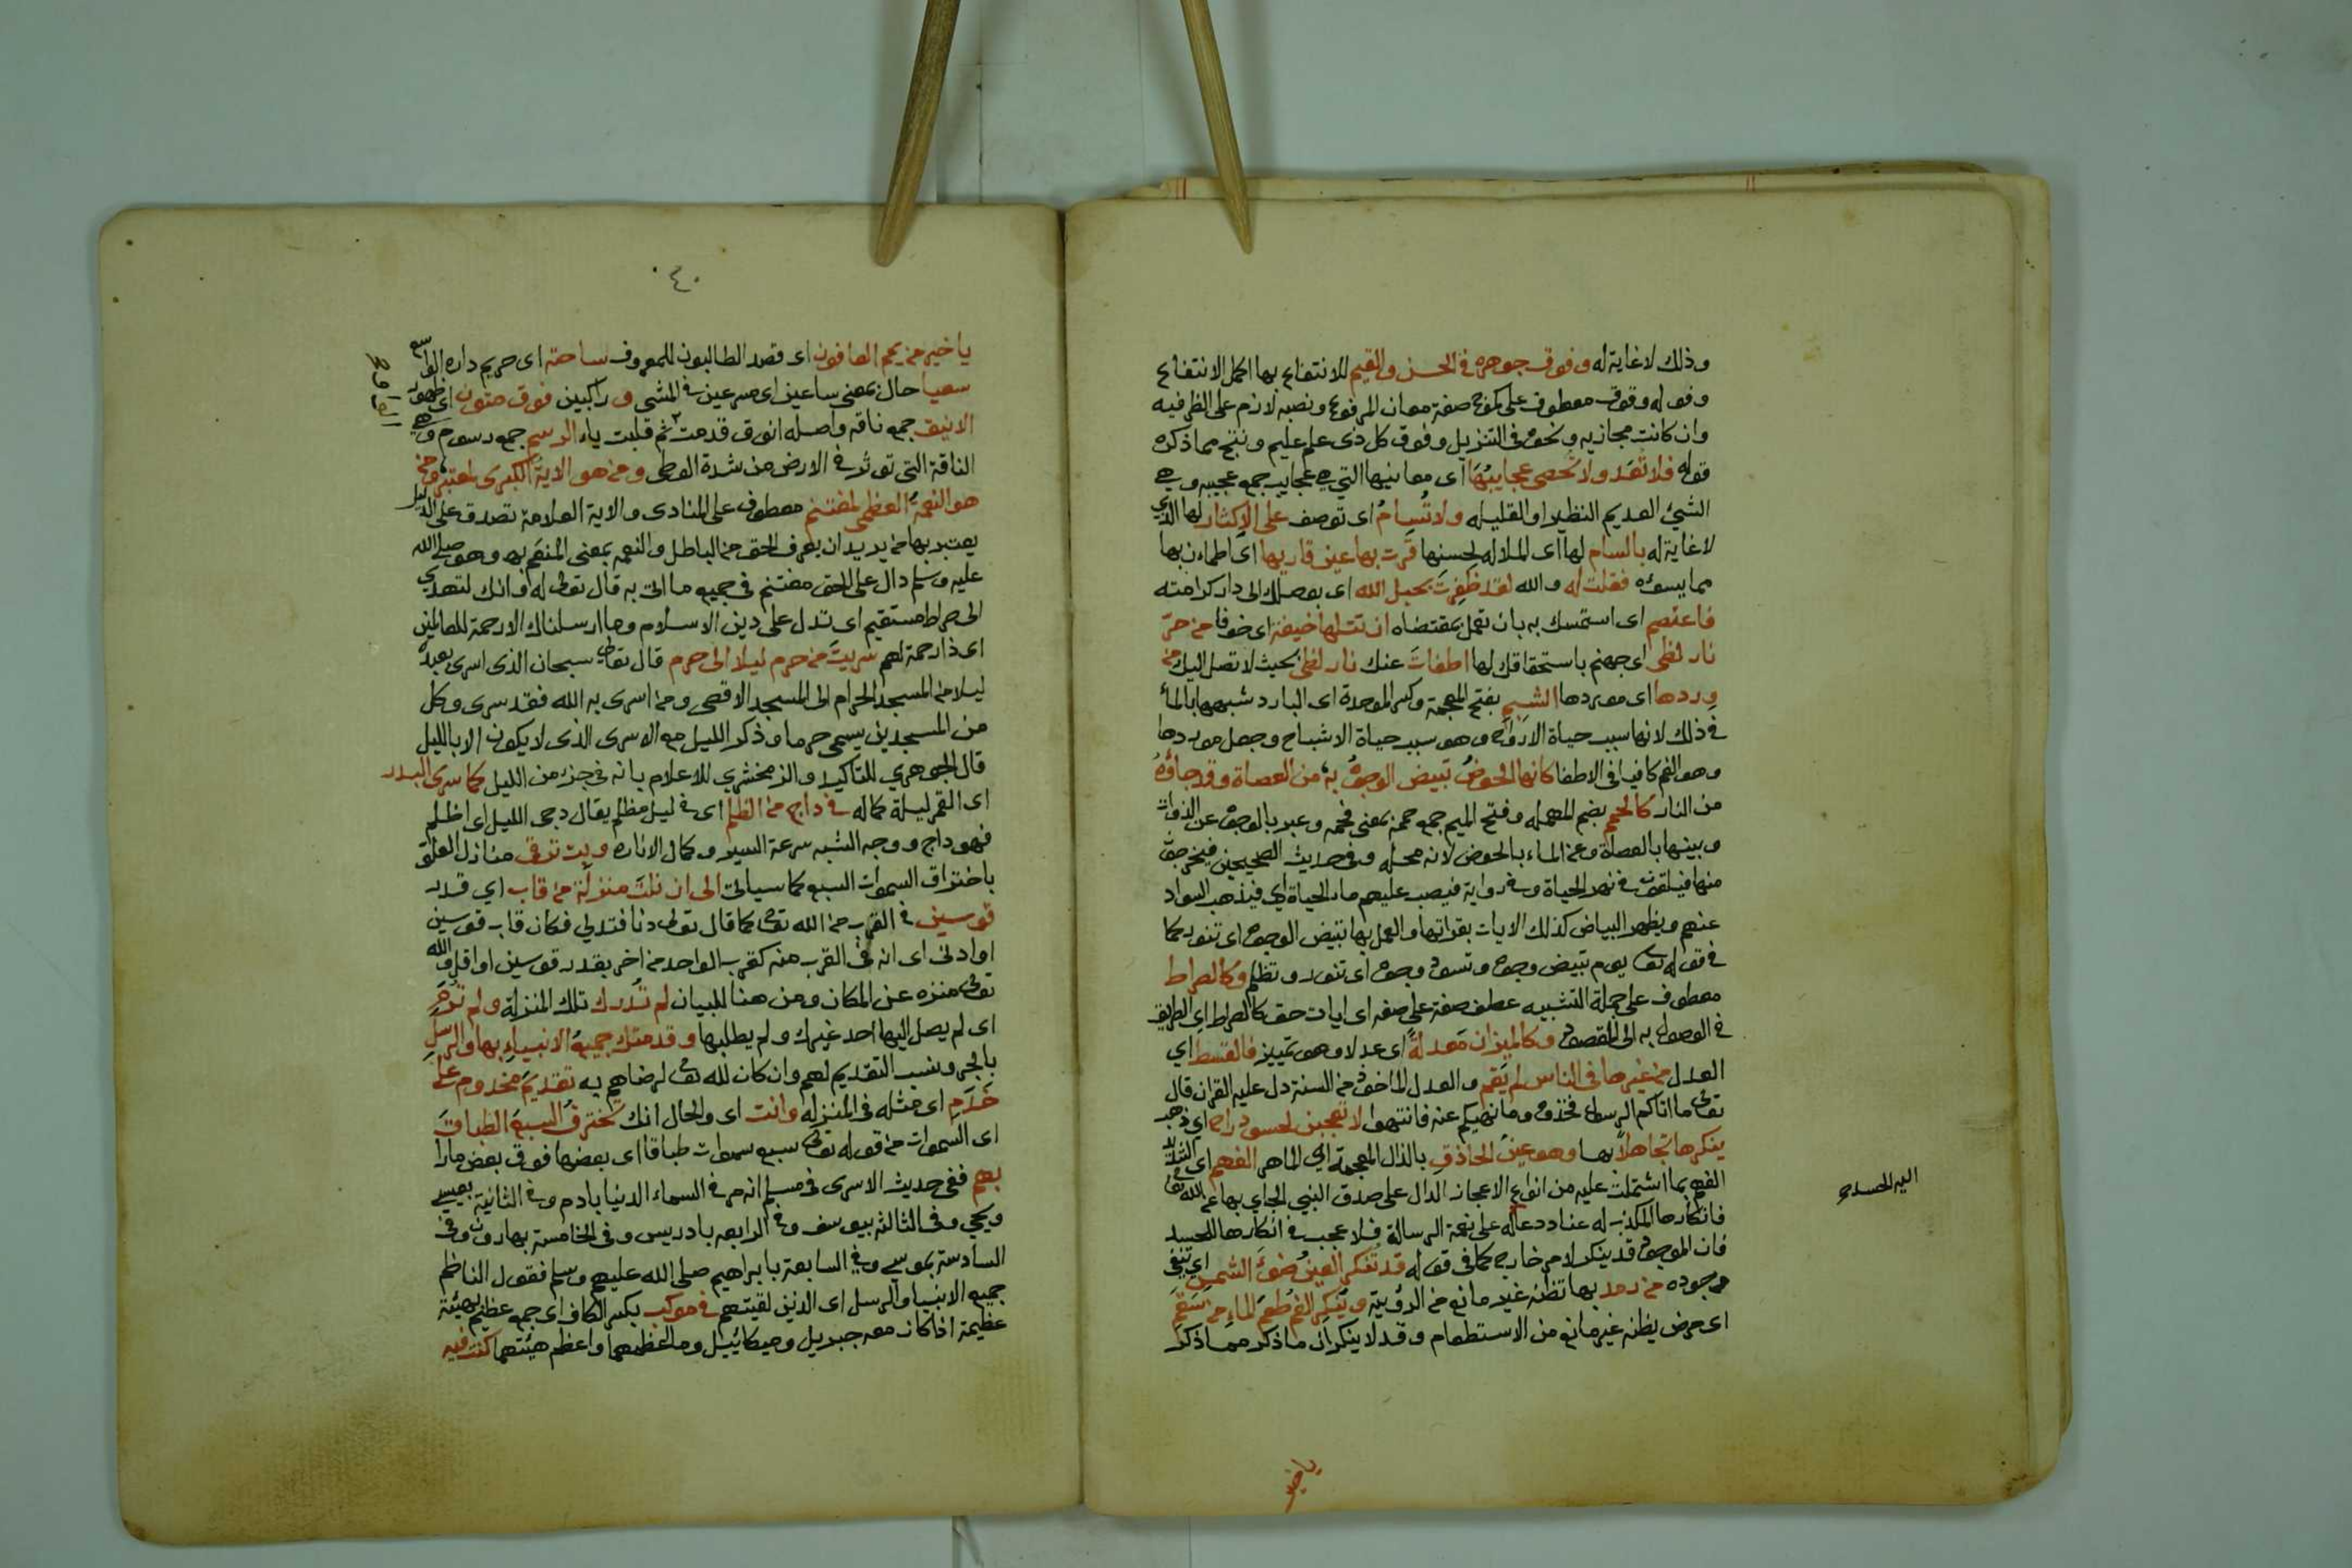 وذلك لا غاية له وفوق جوهره في الحسن والقيم للانتفاع بها اكمل الانتفاع
وقوله وفوق معطوف على كموج صفة معان المرفوع ونصبه لازم على الظرفيه
وان كانت مجازيه ونحوه في التنزيل وفوق كل ذى علم عليم ونتج مما ذكره
قوله فلا تُعَد ولا تُحصى عجايبُهَا اى معانيها التي هي عجايب جمع عجيبه وهي
الشيئ العديم النظير او القليله ولا تُسامُ اى توصف على الإكثار لها الذي
لا غاية له بالسام لها اى الملاله لحسنها قَرت بها عين قاريها اى اطمان بها
مما يسوءه فقلت له والله لقد ظَفِرتَ بحبل الله اى بوصلك الى دار كرامته
فاعتصم اى استمسك به بان تعمل بمقتضاه ان تتلها خيفة اى خوفا من حرّ
نار لظى اى جهنم باستحقاقك لها اطفات عنك نار لظى بحيث لا تصل اليك من
وِردها اى موردها الشبم بفتح المعجمة وكسر الموحدة اى البارد شبهها بالماء
في ذلك لانها سبب حياة الارواح وهو سبب حياة الاشباح وجعل موردها
وهو الفم كافيا في الاطفا كانها الحوضُ تبيض الوجوهُ به من العصاة وقد جاؤهُ
من النار كالحمم بضم المهمله وفتح الميم جمع حممة بمعنى فحمه وعبر بالوجوه عن الذوات
وبينها بالعصاة وعن الماء بالحوض لانه محله وفي حديث الصحيحين فيخرجون
منها فيلقون في نهر الحياة وفي رواية فيصب عليهم ماء الحياة اي فيذهب السواد
عنهم ويظهر البياض كذلك الايات بقراتها والعمل بها تبيض الوجوه اى تنور كما
في قوله تعالى يوم تبيض وجوه وتسود وجوه اى تنور وتظلم وكالصراط
معطوف على جملة التشبيه عطف صفة على صفه اى ايات حق كالصراط اي الطريق
في الوصول به الى المقصود وكالميزان مَعدلةً اى عدلا وهو تمييز فالقسط اي
العدل من غيرها في الناس لم يقم والعدل الماخوذ من السنة دل عليه القران قال
تعالى ما اتاكم الرسول فخذوه وما نهيكم عنه فانتهوا لا تعجبن لحسود راح اى ذهب
ينكرها تجاهلاً بها وهو عينُ الحاذق بالذال المعجمة اي الماهر الفهم اى الشديد
الفهم بما اشتملت عليه من انواع الاعجاز الدال على صدق النبي الجاي بها عن الله تعالى
فانكارها المكذب له عناد دعاه على نعمة الرسالة فلا عجب في انكارها للحسد
فان الموجود قد ينكر لامر خارج كما في قوله قد تُنكر العينُ ضَوءَ الشمس اي تنفي
وجوده من رمد بها تظنه غير مانع من الرؤية ويُنكر الفمُ طَعمَ الماء من سَقَم
اى مرض يظنه غير مانع من الاستطعام وقد لا ينكران ما ذكر مما ذكر
ياخير
٤٠
ياخير من يمم العافون اى قصد الطالبون للمعروف ساحته اى حريم داره الواسع
سعيا حال بمعنى ساعين اى مسرعين في المشى وراكبين فوق متون اى ظهور
الانيق جمع ناقه واصله انوق قدمت ثم قلبت ياء الرسم جمع رسوم وهي
الناقة التي تؤثر في الارض من شدة الوطى ومن هو الاية الكبرى لمعتبر ومن
هو النعمةُ العظمى لمغتنم معطوف على المنادى والاية العلامة تصدق على الدليل
يعتبر بها من يريد ان يعرف الحق من الباطل والنعمه بمعنى المنعم به وهو صلى الله
عليه وسلم دال على الحق مغتنم في جميع ما اتى به قال تعالى له وانك لتهدي
الى صراط مستقيم اى تدل على دين الاسلام وما ارسلناك الا رحمة للعالمين
اى ذا رحمة لهم سريتَ من حرم ليلا الى حرم قال تعالى سبحان الذى اسرى بعبده
ليلا من المسجد الحرام الى المسجد الاقصى ومن اسرى به الله فقد سرى وكل
من المسجدين يسمى حرما وذكر الليل مع الاسرى الذى لا يكون الا بالليل
قال الجوهري للتاكيد والزمخشري للاعلام بانه في جزء من الليل كما سرى البدر
اى القمر ليلة كماله في داج من الظلم اى في ليل مظلم يقال دجى الليل اى اظلم
فهو داج ووجه الشبه سرعة السير وكمال الاناره وبت ترقى منازل العلو
باختراق السموات السبع كما سياتي الى ان نلتَ منزلة من قاب اي قدر
قوسين في القرب من الله تعالى كما قال تعالى دنا فتدلى فكان قاب قوسين
او ادنى اى انه في القرب منه كقرب الواحد من اخر بقدر قوسين او اقل والله
تعالى منزه عن المكان ومن هنا للبيان لم تُدرك تلك المنزلة ولم تُرَمِ
اى لم يصل اليها احد غيرك ولم يطلبها وقدمتك جميعُ الانبياءِ بها والرسلِ
بالجر ونسب التقديم لهم وان كان لله تعالى لرضاهم به تقديمَ مخدوم على
خَدَمِ اى مثله في المنزله وانت اى والحال انك تخترقُ السبعَ الطباقَ
اى السموات من قوله تعالى سبع سموات طباقا اى بعضها فوق بعض مارا
بهم ففي حديث الاسرى في مسلم انه مر في السماء الدنيا بادم وفي الثانية بعيسى
ويحيى وفي الثالثه بيوسف وفي الرابعه بادريس وفي الخامسة بهارون وفي
السادسة بموسى وفي السابعة بابراهيم صلى الله عليهم وسلم فقول الناظم
جميع الانبيا والرسل اى الذين لقيتهم في موكب بكسر الكاف اى جمع عظيم بهيئة
عظيمة اذ كان معه جبريل وميكائيل وما اعظمهما واعظم هيئتهما كنت فيه